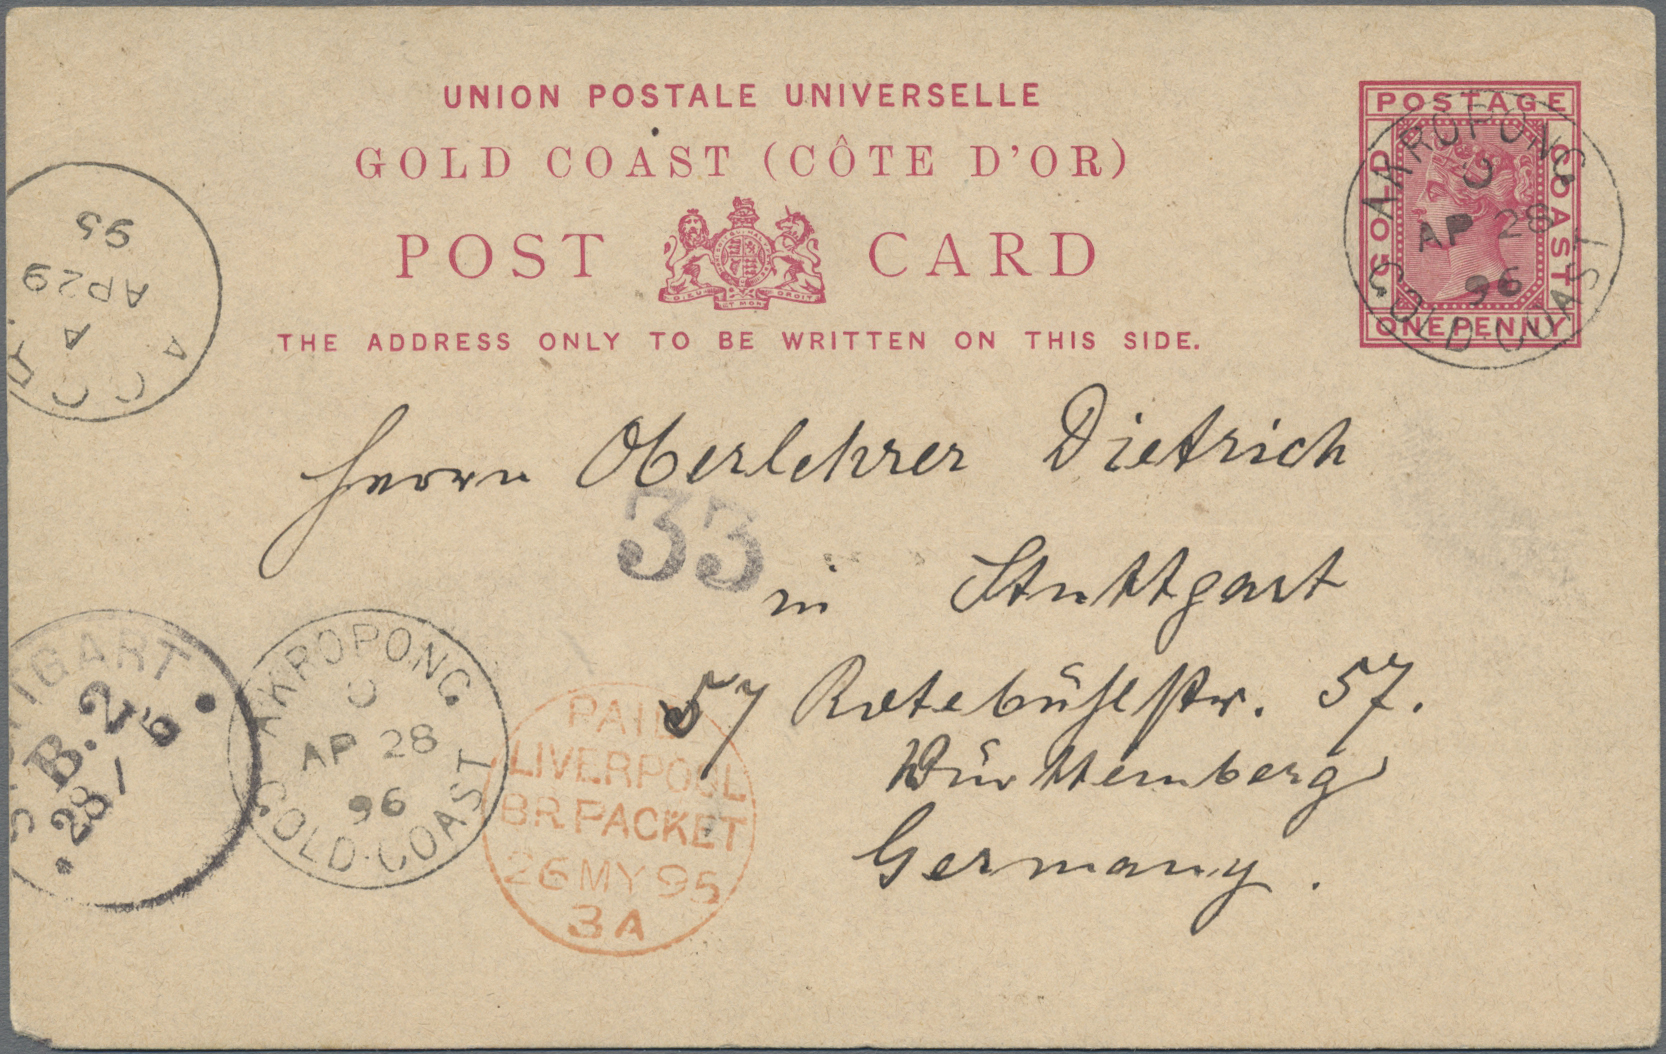 UNION POSTALE UNIVERSELLE
GOLD COAST (CÔTE D'OR)
POST CARD
DIEU ET MON DROIT
THE ADDRESS ONLY TO BE WRITTEN ON THIS SIDE.
POSTAGE
GOLD COAST
ONE PENNY
AKROPONG
AP 28
96
GOLD COAST
ACC
A
AP 29
95
Herrn Oberlehrer Dietrich
33
in Stuttgart
57 Rotebühlstr. 57.
Württemberg
Germany.
TGART
B. 2
28/5
AKROPONG
AP 28
96
GOLD COAST
PAID
LIVERPOOL
BR PACKET
26 MY 95
3A